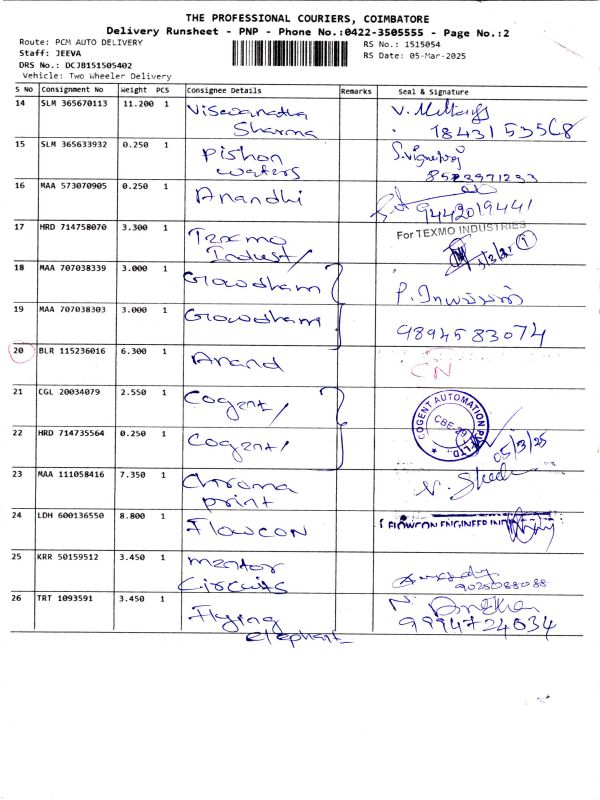 THE PROFESSIONAL COURIERS, COIMBATORE
Delivery Runsheet - PNP - Phone No.:0422-3505555 - Page No.:2
Route: PCM AUTO DELIVERY
RS No.: 1515054
Staff: JEEVA
RS Date: 05-Mar-2025
DRS No.: DCJB151505402
Vehicle: Two Wheeler Delivery
S No Consignment No Weight PCS Consignee Details Remarks Seal & Signature
14 SLM 365670113 11.200 1 Viswanatha
Sharma
15 SLM 365633932 0.250 1 Pishon
waters
8523971233
16 MAA 573070905 0.250 1 Anandhi
9442019441
17 HRD 714758070 3.300 1 Texmo
Indust/
For TEXMO INDUSTRIES
18 MAA 707038339 3.000 1 Gowdham
19 MAA 707038303 3.000 1 Gowdham
9894583074
20 BLR 115236016 6.300 1 Anand CN
21 CGL 20034079 2.550 1 Cogent/
COGENT AUTOMATION PVT LTD.,
CBE-29
22 HRD 714735564 0.250 1 Cogent/ 05/3/25
23 MAA 111058416 7.350 1 Chroma
print
24 LDH 600136550 8.800 1 Flowcon
FLOWCON ENGINEER
25 KRR 50159512 3.450 1 mentor
Circuits
9025088088
26 TRT 1093591 3.450 1 Flying
elephant
9994724034